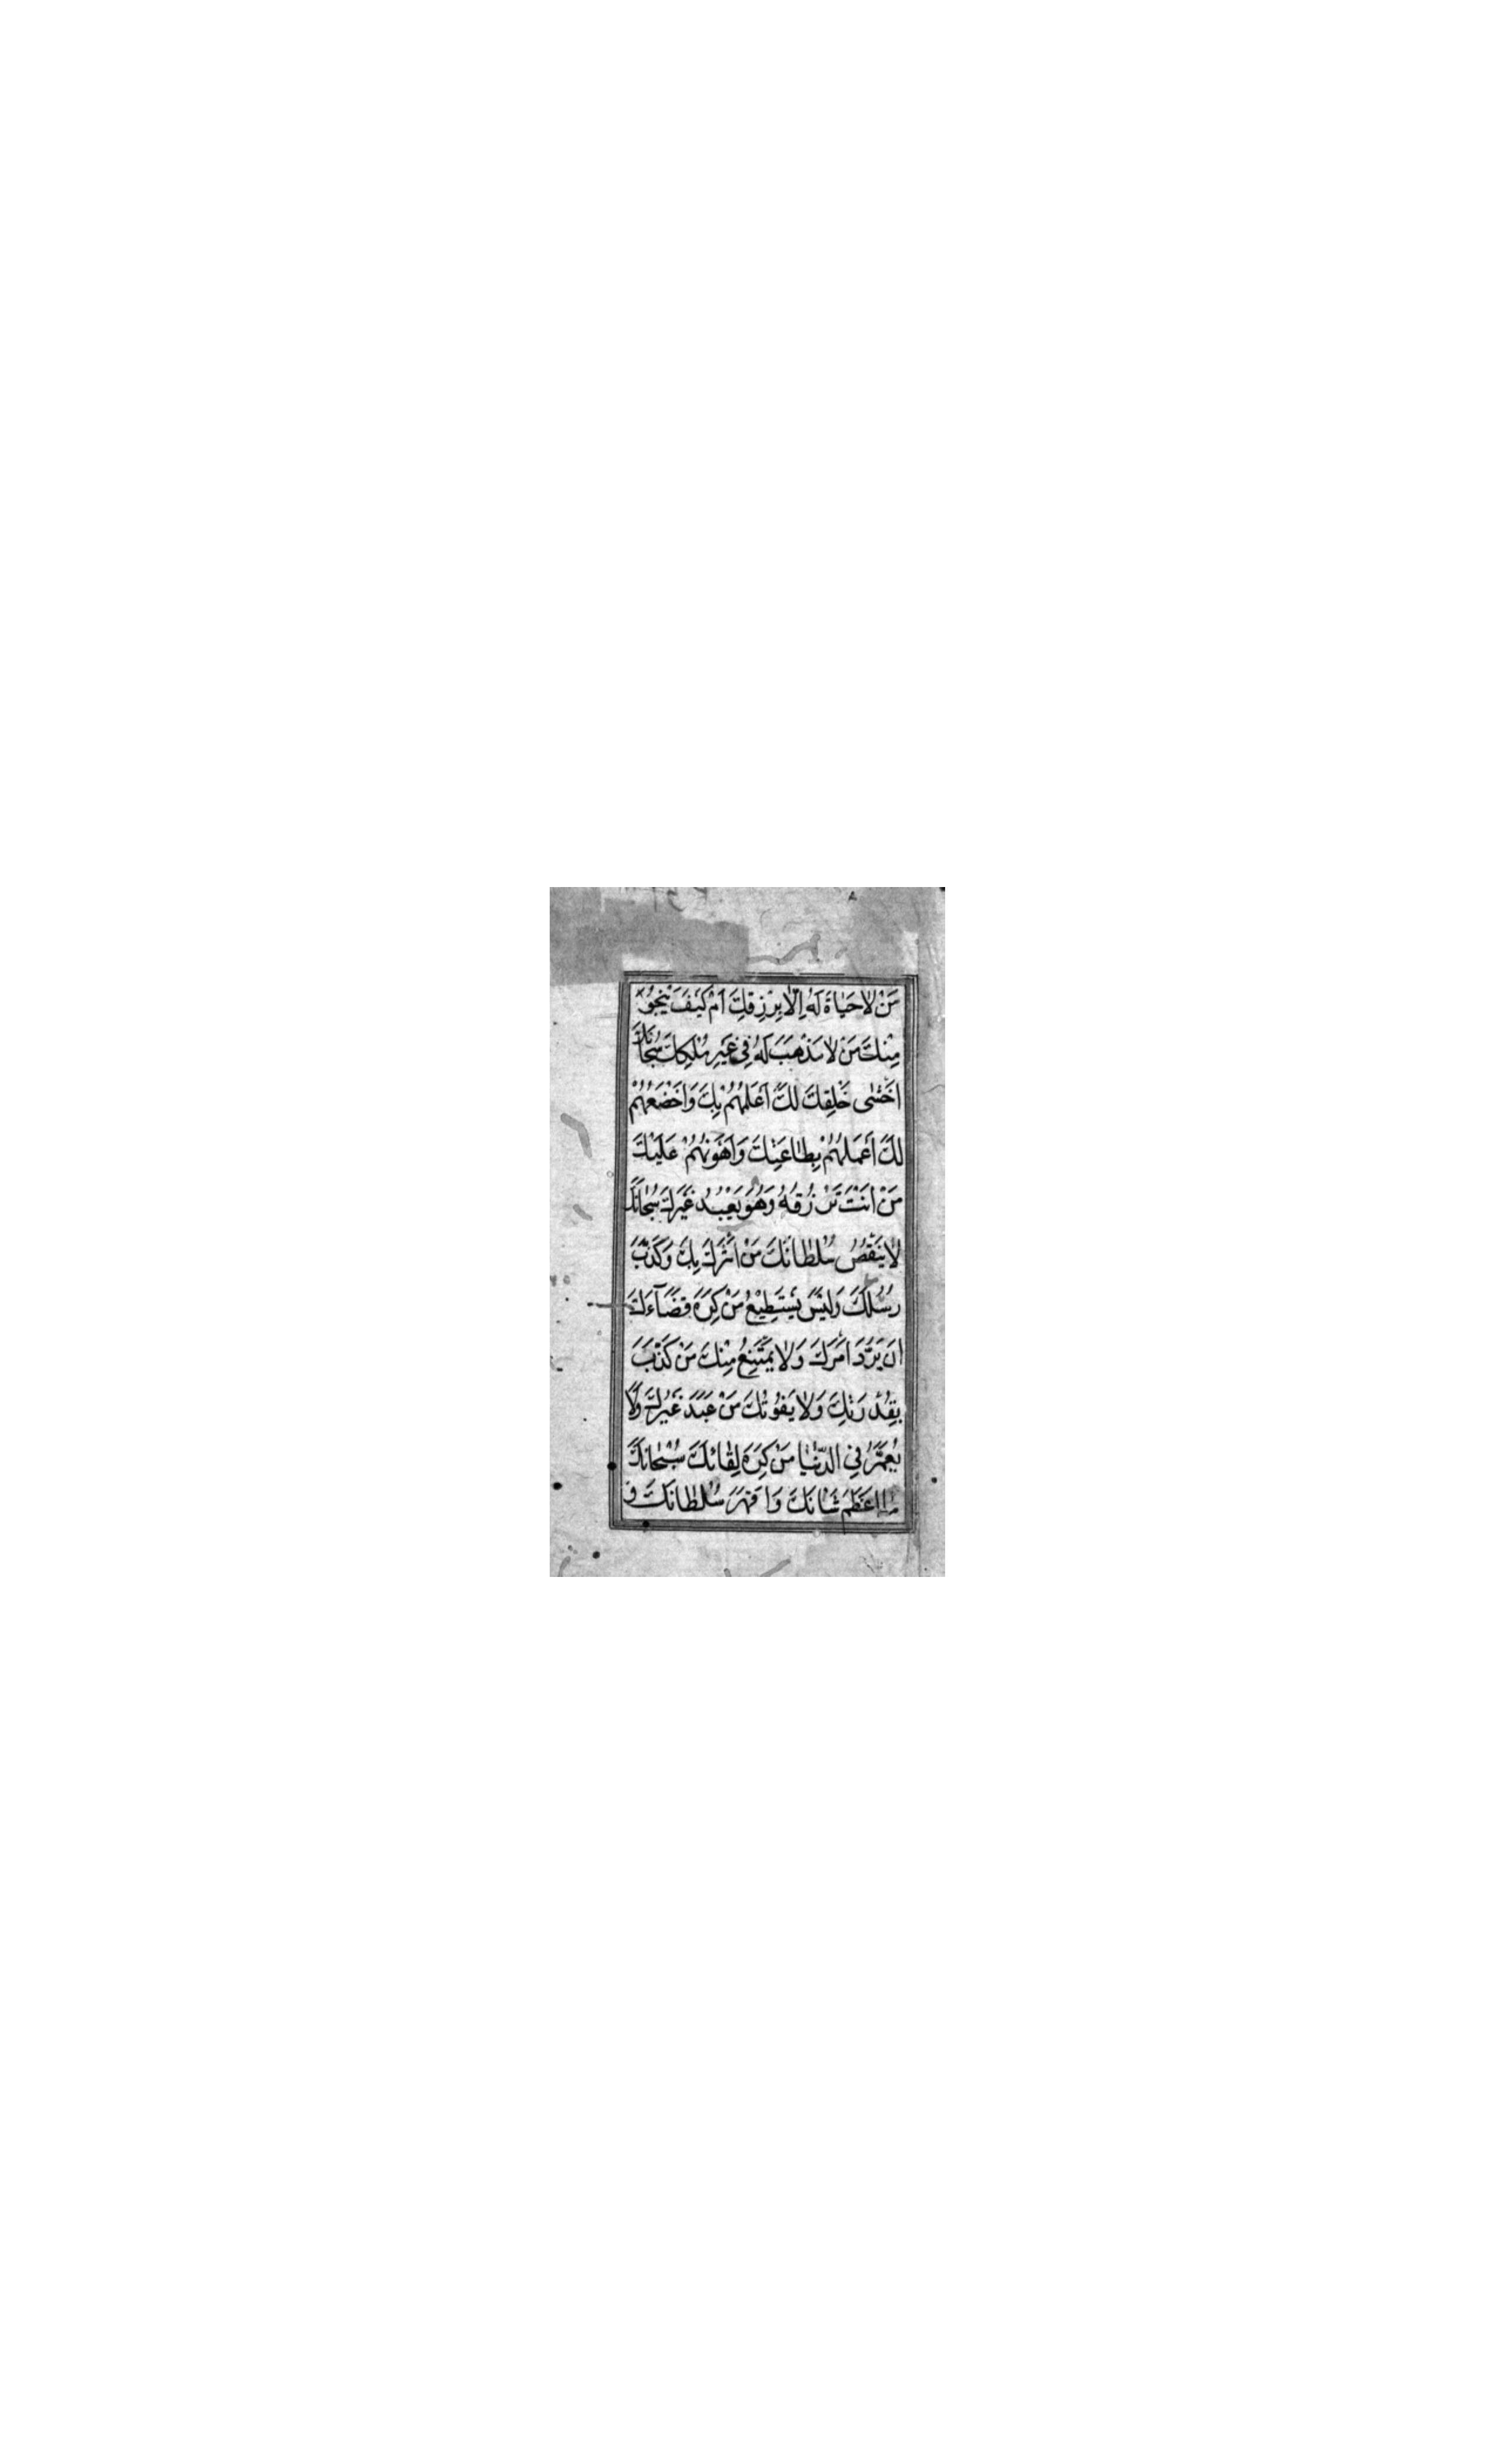 مَنْ لاٰ حَیٰاةَ لَهُ اِلّاٰ بِرِزْقِكَ اَمْ كَيْفَ يَنْجُو
مِنْكَ مَنْ لاٰ مَذْهَبَ لَهُ فِي غَيْرِ مُلْكِكَ سُبْحٰانَكَ
اَخْشٰى خَلْقِكَ لَكَ اَعْلَمُهُمْ بِكَ وَاَخْضَعُهُمْ
لَكَ اَعْمَلُهُمْ بِطٰاعَتِكَ وَاَهْوَنُهُمْ عَلَيْكَ
مَنْ اَنْتَ تَرْزُقُهُ وَهُوَ يَعْبُدُ غَيْرَكَ سُبْحٰانَكَ
لاٰ يَنْقُصُ سُلْطٰانَكَ مَنْ اَشْرَكَ بِكَ وَكَذَّبَ
رُسُلَكَ وَلَيْسَ يَسْتَطِيْعُ مَنْ كَرِهَ قَضٰاۤءَكَ
اَنْ يَرُدَّ اَمْرَكَ وَلاٰ يَمْتَنِعُ مِنْكَ مَنْ كَذَّبَ
بِقُدْرَتِكَ وَلاٰ يَفُوْتُكَ مَنْ عَبَدَ غَيْرَكَ وَلاٰ
يُعَمَّرُ فِي الدُّنْيٰا مَنْ كَرِهَ لِقٰائَكَ سُبْحٰانَكَ
مٰا اَعْظَمَ شَأْنَكَ وَاَقْهَرَ سُلْطٰانَكَ وَ